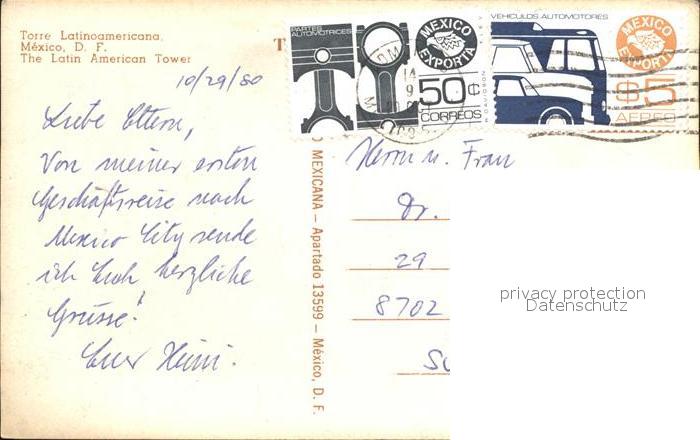 Torre Latinoamericana.
México, D. F.
The Latin American Tower
T
10/29/80
Liebe Eltern,
Von meiner ersten
Geschäftsreise nach
Mexico City sende
ich Euch herzliche
Grüsse!
Euer Heini.
MEXICANA — Apartado 13599 — México, D. F.
PARTES
AUTOMOTRICES
MEXICO
EXPORTA
50¢
CORREOS
VEHICULOS AUTOMOTORES
MEXICO
EXPORTA
$5
AEREO
14
9
Herrn u. Frau
Dr.
29
8702
privacy protection
Datenschutz